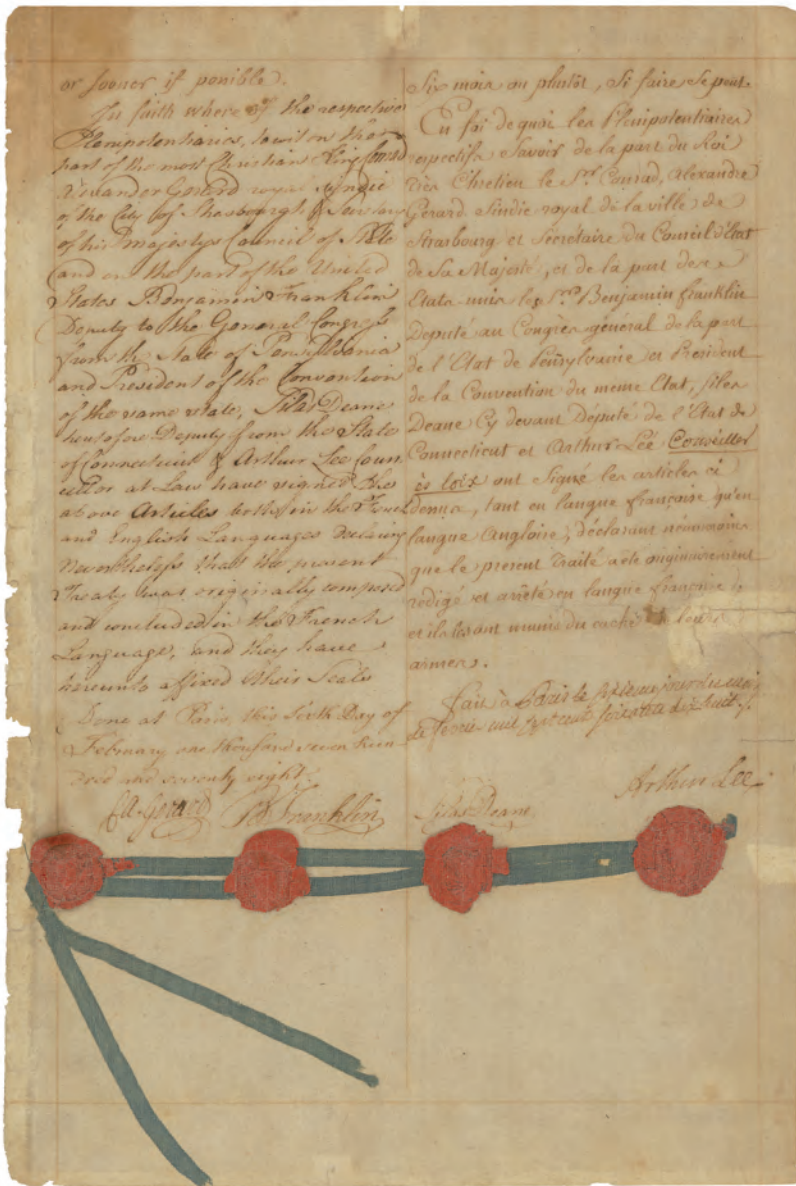 or sooner if possible.
In faith where of the respective
Plenipotentiaries, to wit on the
part of the most Christian King Conrad
Alexander Gerard royal syndic
of the City of Strasbourgh & Secretary
of his majestys Council of State
and on the part of the United
States Benjamin Franklin
Deputy to the General Congress
from the State of Pensylvania
and President of the Convention
of the same state, Silas Deane
heretofore Deputy from the State
of Connecticut & Arthur Lee Coun
cellor at Law have signed the
above Articles both in the French
and English Languages declaring
Nevertheless that the present
Treaty was originally composed
and concluded in the French
Language, and they have
hereunto affixed their Seals
Done at Paris, this sixth Day of
February one thousand seven hun
dred and seventy eight.
Six mois ou plutôt, Si faire se peut.
En foi de quoi les Plenipotentiaires
respectifs Savoir de la part du Roi
très Chretien le Sr. Conrad, Alexandre
Gerard Sindic royal de la ville de
Strasbourg et Secrétaire du Conseil d'Etat
de Sa Majesté, et de la part des
Etats-unis les Srs. Benjamin franklin
Deputé au Congrès general de la part
de l'Etat de Pensylvanie et President
de la Convention du meme Etat, Silas
Deane Cy devant Député de l'Etat de
Connecticut et Arthur Lée Conseiller
ès loix ont signé les articles ci
dessus, tant en langue françoise qu'en
langue Angloise, déclarant néanmoins
que le present Traité a été originairement
redigé et arrêté en langue françoise
et ils les ont munis du cachet de leurs
armes.
fait à Paris le sixieme jour du mois
de fevrier mil sept cent soixante dix huit.
CA. Gerard B Franklin Silas Deane Arthur Lee